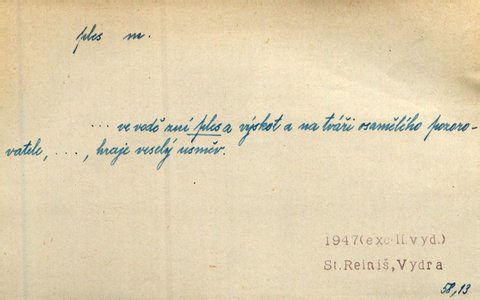 ples m.
... ve vodě zní ples a výskot a na tváři osamělého pozoro-
vatele, ..., hraje veselý úsměv.
1947(exc.II.vyd.)
St.Reiniš,Vydra
58,13